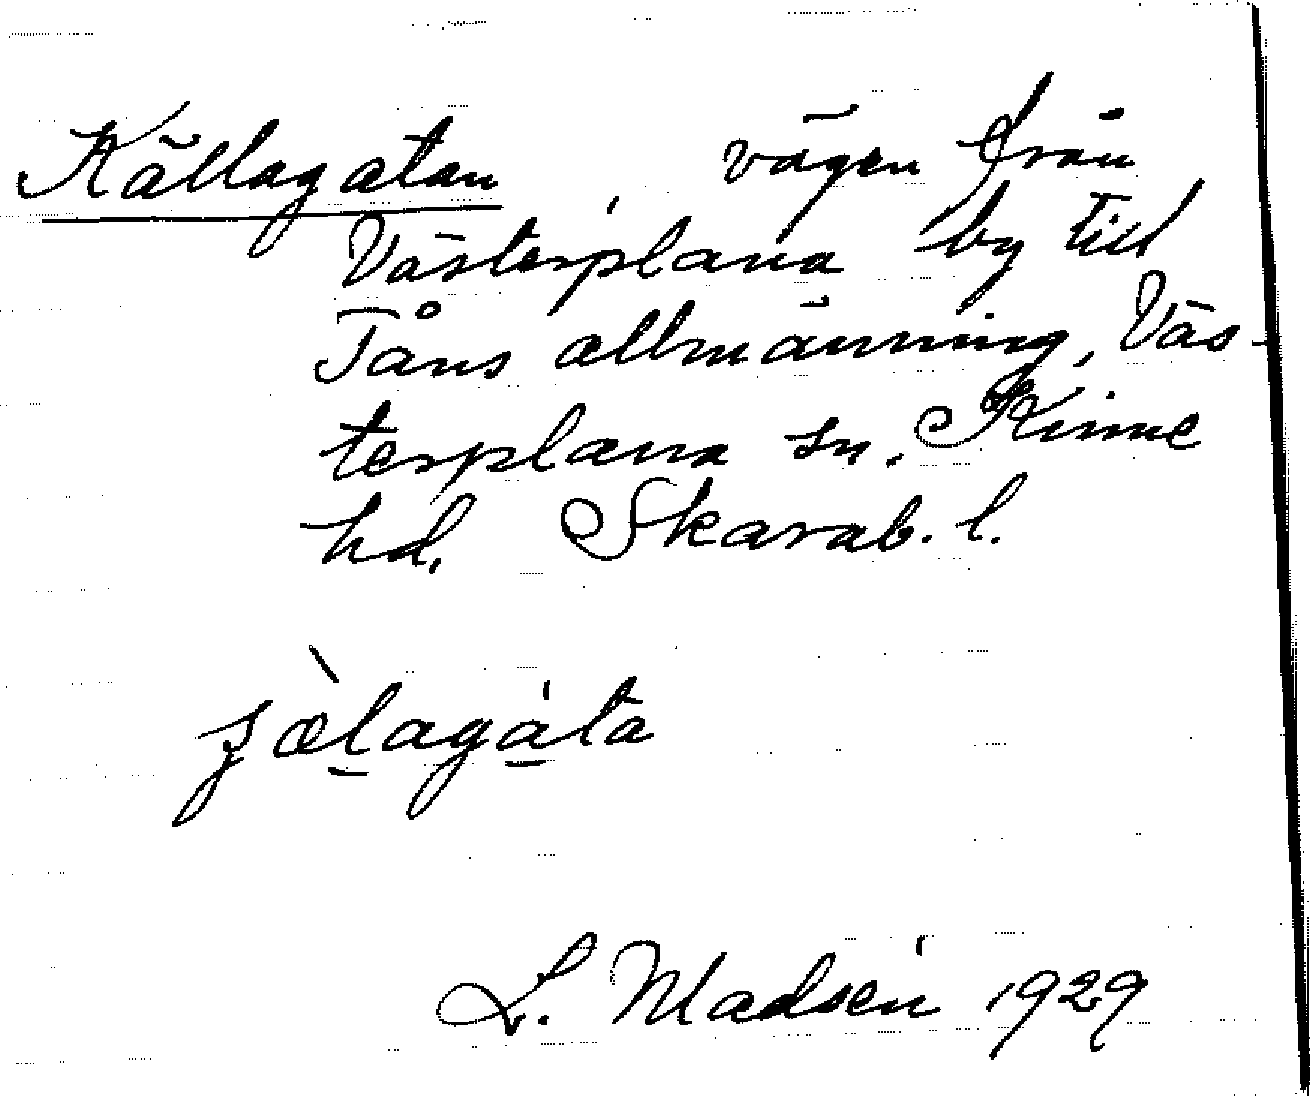 Källagatan vägen från
Västerplana by till
Tåns allmänning, Väs-
terplana sn. Kinne
hd. Skarab. l.
L. Madsén 1929